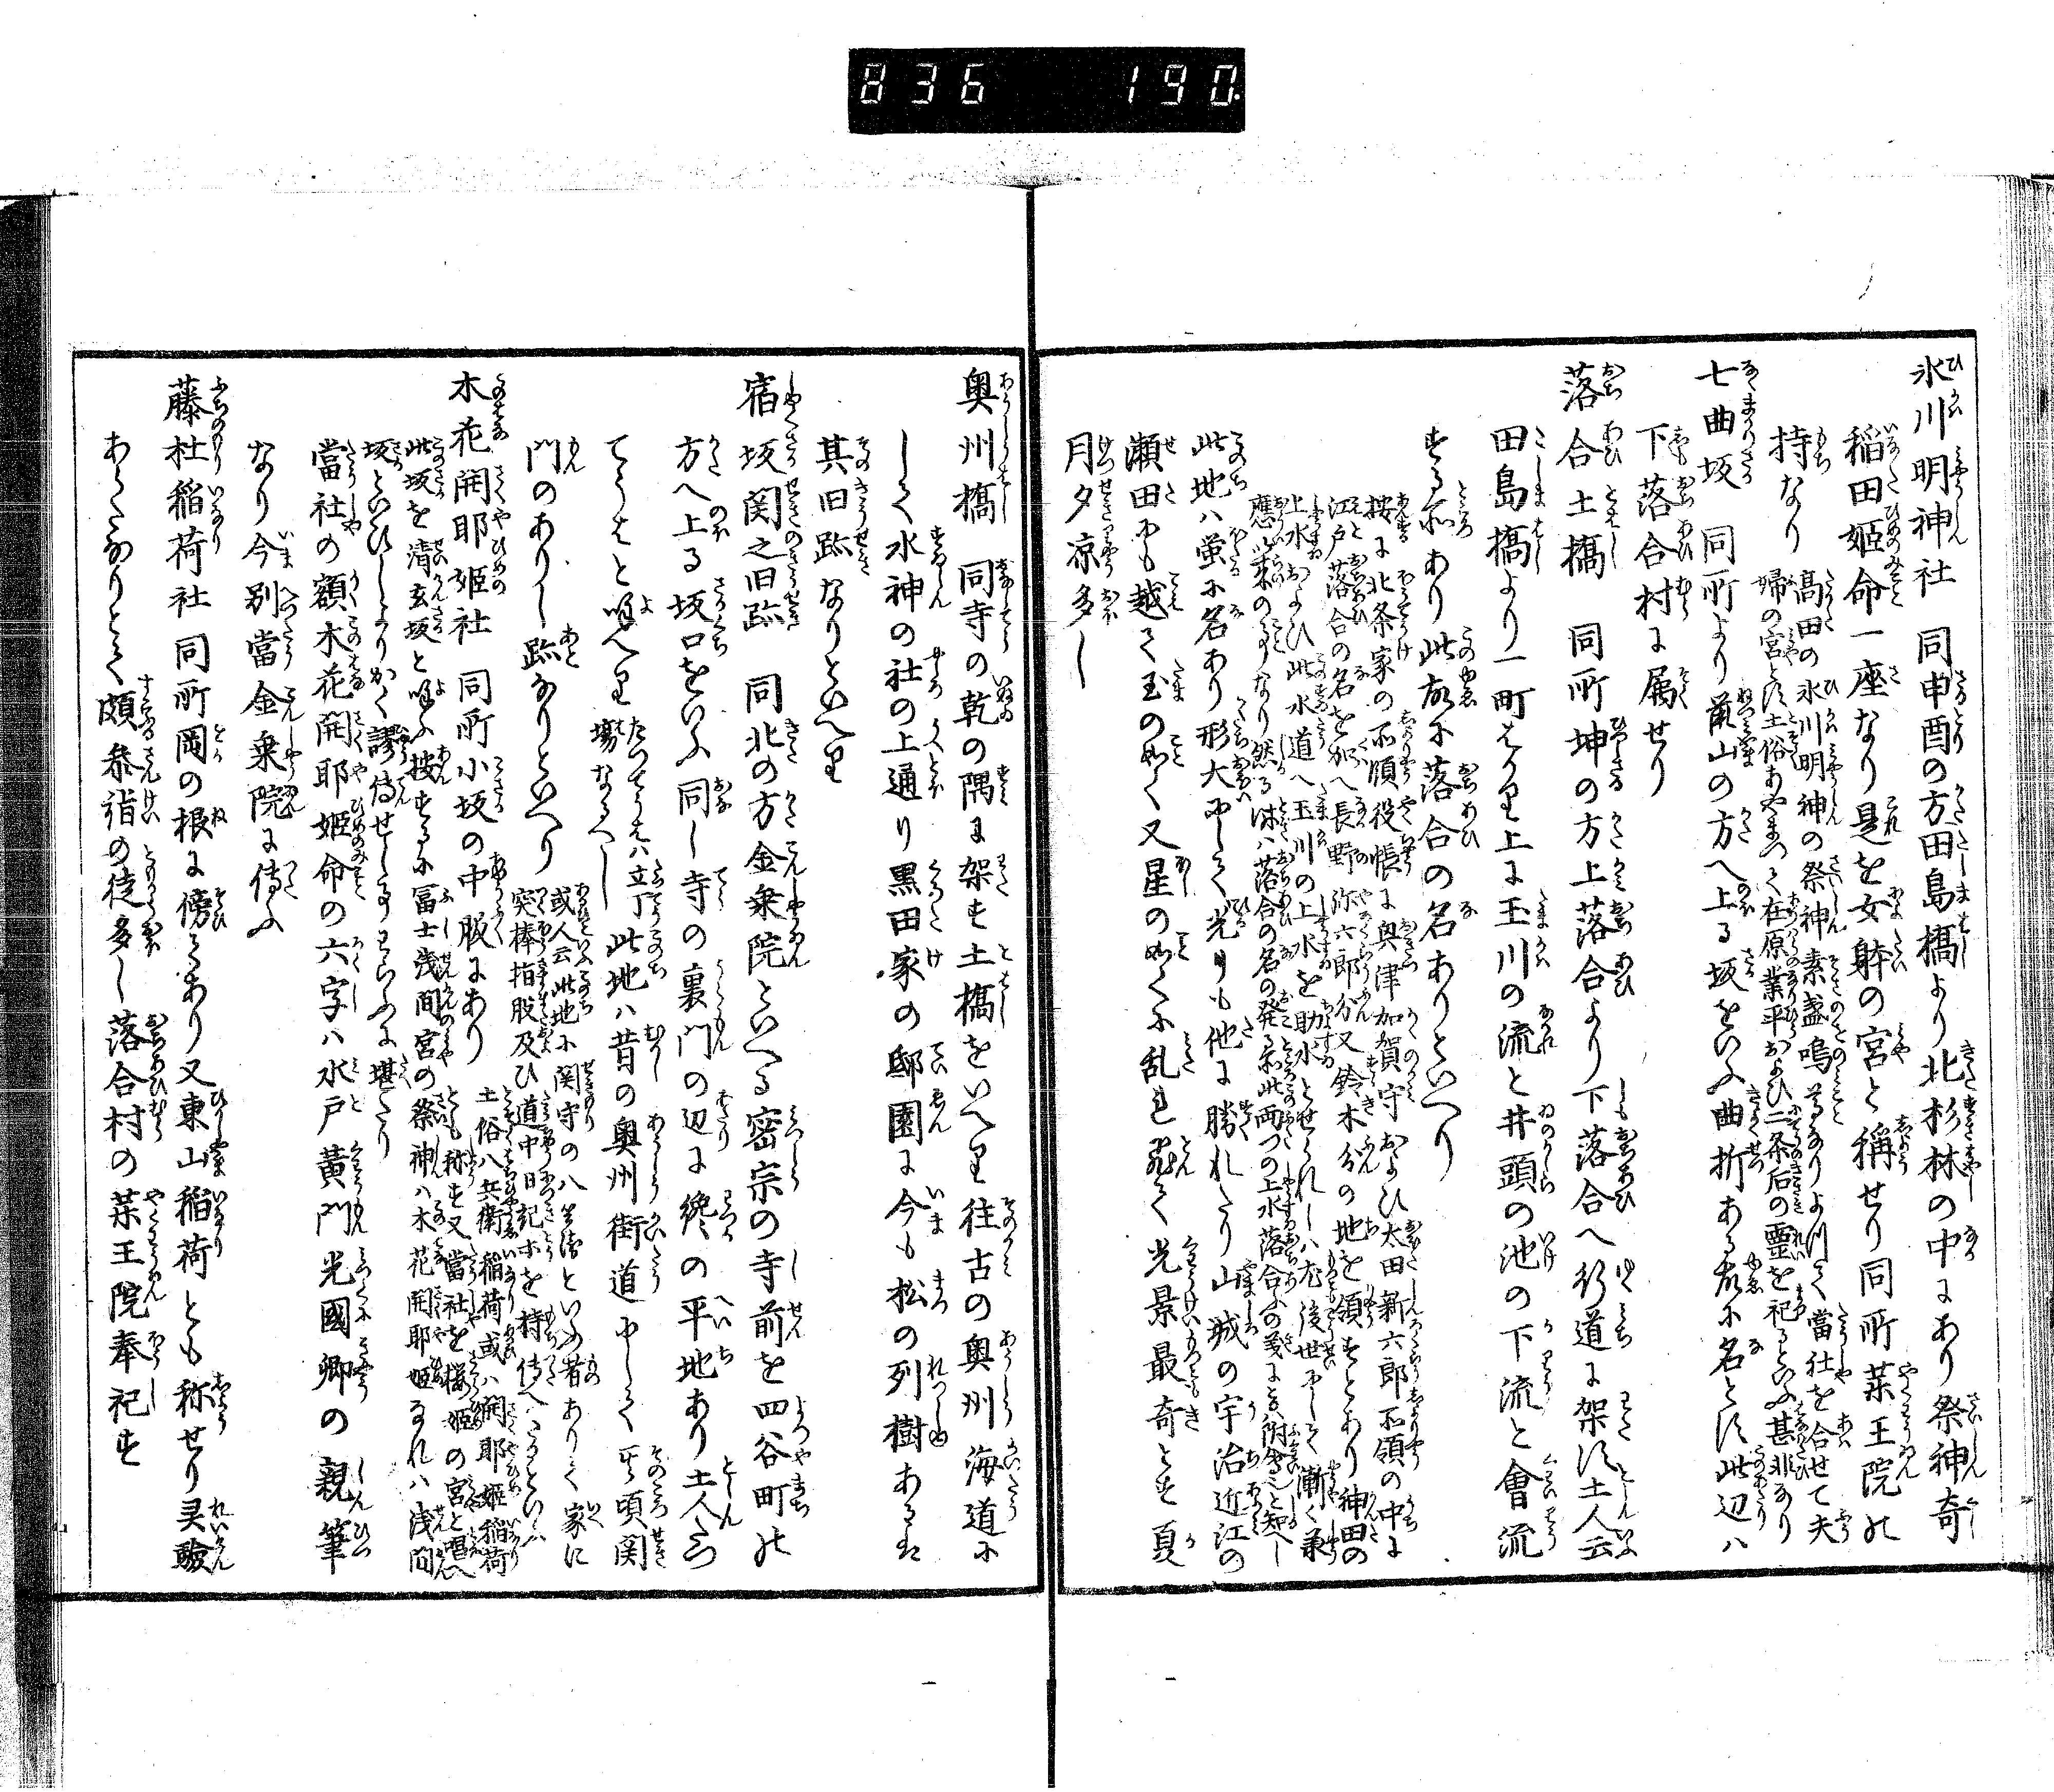 836 190
氷川明神社 同申酉の方田島橋より北杉林の中にあり祭神奇
稲田姫命一座なり是を女躰の宮と稱せり同所薬王院の
持なり 高田の氷川明神の祭神素盞嗚尊なりよつて當社を合せて夫
婦の宮とす土俗あやまつて在原業平および二条后の靈を祀るといふ甚非なり
七曲坂 同所より鼠山の方へ上る坂をいふ曲折ある故に名とす此辺ハ
下落合村に属せり
落合土橋 同所坤の方上落合より下落合へ行道に架す土人云
田島橋より一町はかり上に玉川の流と井頭の池の下流と會流
する所あり此故に落合の名ありといへり
按に北条家の所領役帳に興津加賀守および太田新六郎所領の中に
江戸落合の名を加へ長野弥六郎分又鈴木分の地を領すとあり神田の
上水および此水道へ玉川の上水を助水とせられしハ尤後世にして漸く承
應以来の事なり然る時ハ落合の名の発る所此両つの上水落合ふの義にハあらす附會なりと知へし
此地ハ蛍に名あり形大にして光りも他に勝れたり山城の宇治近江の
瀬田にも越て玉のぬく又星のぬくに乱れ飛て光景最奇とす夏
月夕凉多し
奥州橋 同寺の乾の隅に架す土橋をいへり往古の奥州海道に
して水神の社の上通り黒田家の邸園に今も松の列樹あるは
其旧跡なりといへり
宿坂関之旧跡 同北の方金乗院といへる密宗の寺前を四谷町の
方へ上る坂口をいふ同し寺の裏門の辺に纔の平地あり土人たつ
てうはと唤へり たつてうばハ立丁場なるへし 此地ハ昔の奥州街道にして其頃関
門のありし跡なりといへり 或人云此地に関守の八兵衛といふ者ありて家に
突棒指股及ひ道中日記等を持傳へたるといふ
木花開耶姫社 同所小坂の中腹にあり 土俗八兵衛稲荷或ハ開耶姫稲荷
とも称す又當社を桜姫の宮と唱へ
此坂を清玄坂と唤ふ按するに冨士浅間宮の祭神ハ木花開耶姫なれハ浅間
坂といひしよりかく謬傳せしなるへしわらふに堪たり
當社の額木花開耶姫命の六字ハ水戸黄門光國卿の親筆
なり今別當金乗院に傳ふ
藤杜稲荷社 同所岡の根に傍てあり又東山稲荷とも称せり灵驗
あらたなりとて頗参詣の徒多し落合村の薬王院奉祀す